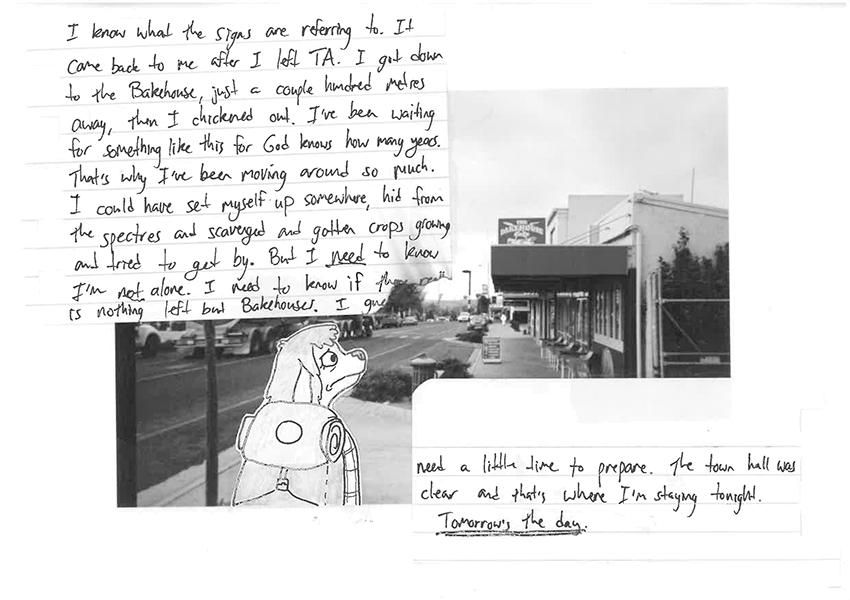 I know what the signs are referring to. It
came back to me after I left TA. I got down
to the Bakehouse, just a couple hundred metres
away, then I chickened out. I've been waiting
for something like this for God knows how many years.
That's why I've been moving around so much.
I could have set myself up somewhere, hid from
the spectres and scavenged and gotten crops growing
and tried to get by. But I need to know
I'm not alone. I need to know if there
is nothing left but Bakehouses. I
THE
BAKEHOUSE
need a little time to prepare. The town hall was
clear and that's where I'm staying tonight.
Tomorrow's the day.